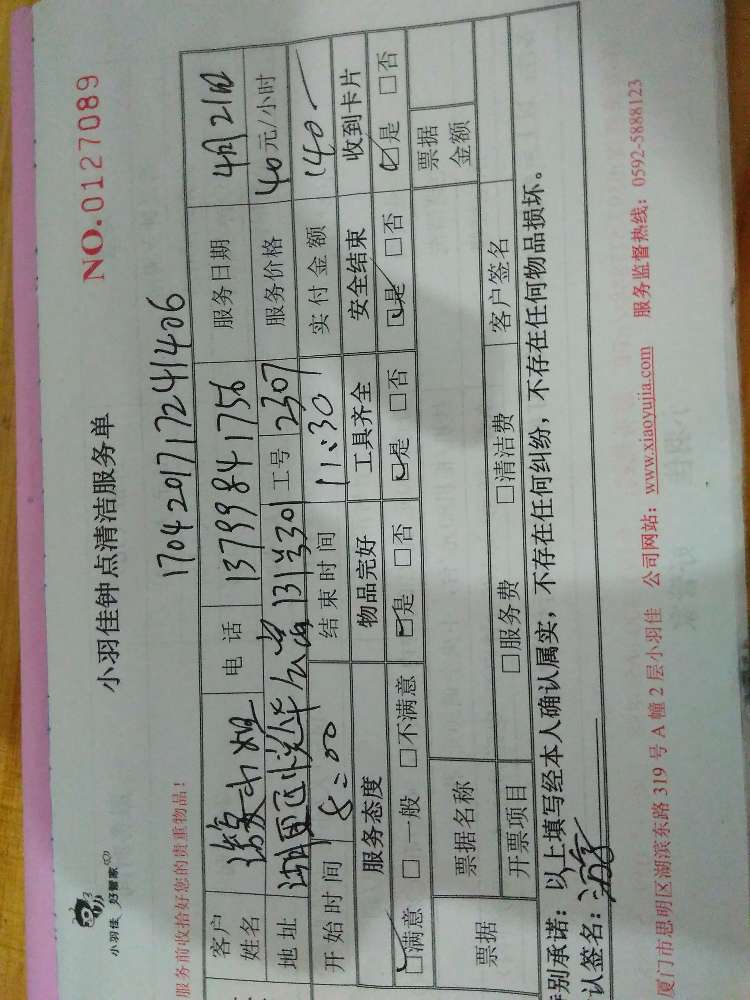 小羽佳 好管家
小羽佳钟点清洁服务单
NO.0127089
服务前收拾好您的贵重物品!
1704201717241406
客户姓名 小姐 电话 13799841756 服务日期 4月21日
地址 131号301 工号 2307 服务价格 40元/小时
开始时间 8:00 结束时间 11:30 实付金额 140—
服务态度 物品完好 工具齐全 安全结束 收到卡片
☑满意 □一般 □不满意 ☑是 □否 ☑是 □否 ☑是 □否 ☑是 □否
票据 票据名称 票据金额
开票项目 □服务费 □清洁费 客户签名
别承诺:以上填写经本人确认属实,不存在任何纠纷,不存在任何物品损坏。
认签名:
厦门市思明区湖滨东路 319 号 A 幢 2 层小羽佳 公司网站:www.xiaoyujia.com 服务监督热线:0592-5888123